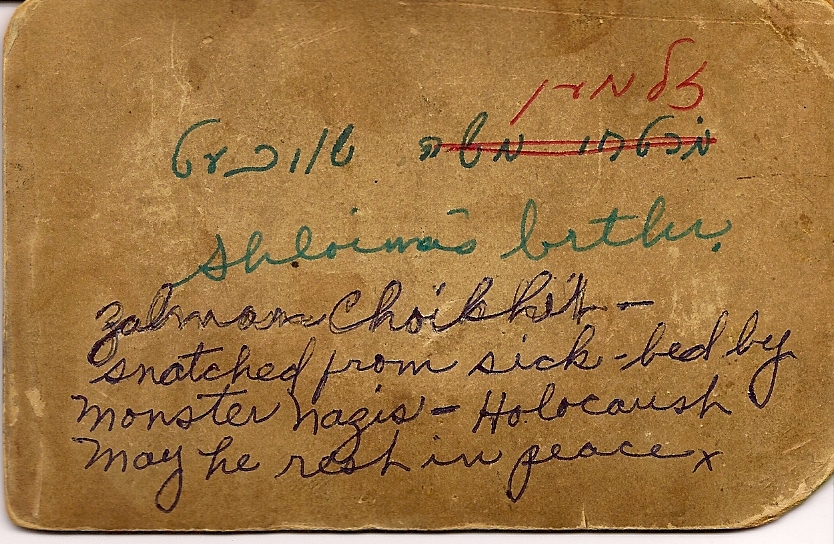 זלמן
משה
Shloima's brther.
Zalman Choikhit –
snatched from sick-bed by
monster nazis – Holocaust
May he rest in peace x